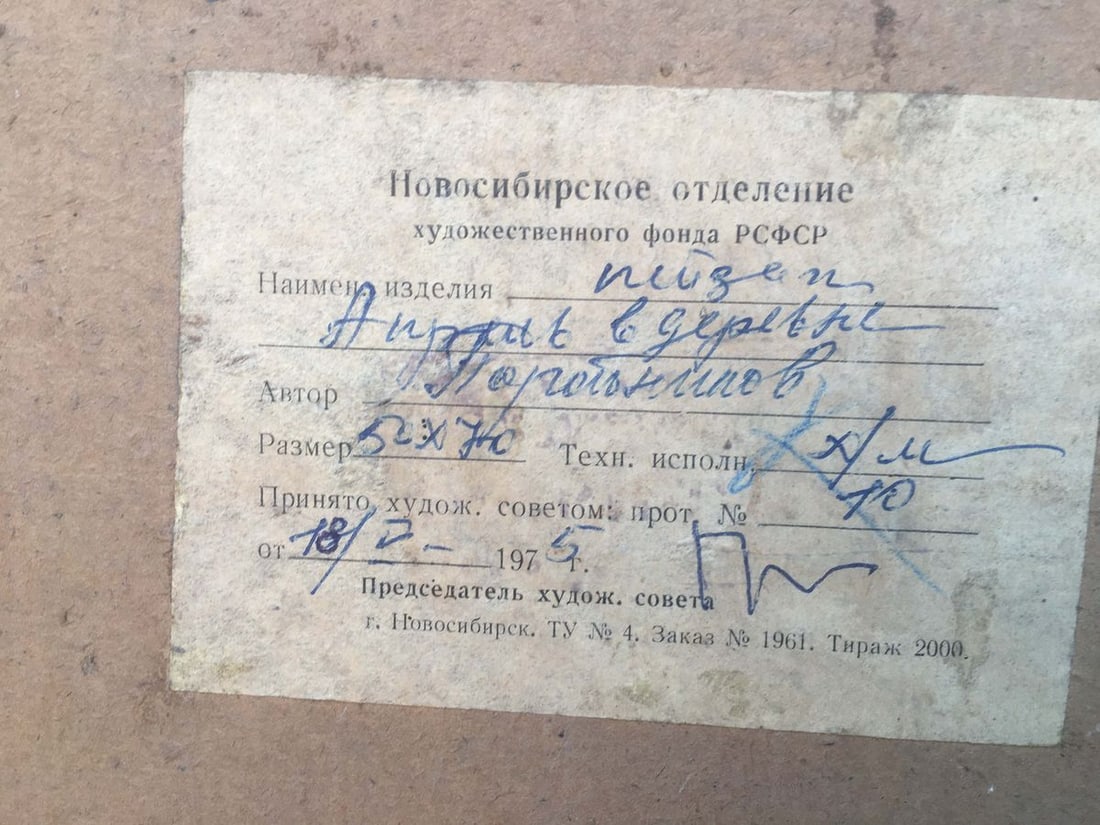 Новосибирское отделение
художественного фонда РСФСР
Наимен. изделия пейзаж
Апрель в деревне
Автор
Размер 50х70 Техн. исполн. х/м
Принято худож. советом: прот. № 10
от 18/II- 1975г.
Председатель худож. совета
г. Новосибирск. ТУ № 4. Заказ № 1961. Тираж 2000.